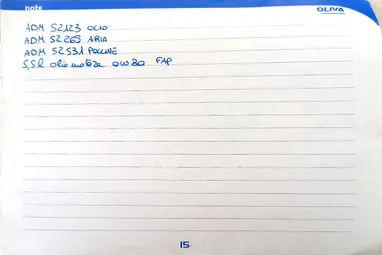 note OLIVA
ADM 52123 OLIO
ADM 52265 ARIA
ADM 52531 POLLINE
5,5l olio motore 0W30 FAP
15